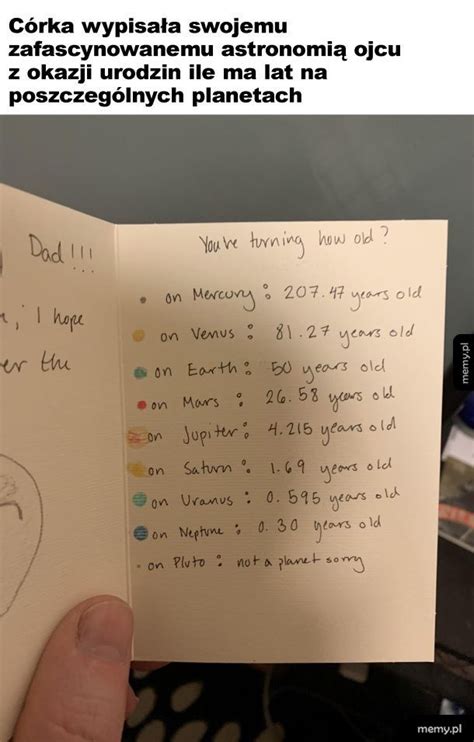 Córka wypisała swojemu
zafascynowanemu astronomią ojcu
z okazji urodzin ile ma lat na
poszczególnych planetach
memy.pl
Dad!!!
I hope
er the
You're turning how old?
on Mercury: 207.47 years old
on Venus: 81.27 years old
on Earth: 50 years old
on Mars: 26.58 years old
on Jupiter: 4.215 years old
on Saturn: 1.69 years old
on Uranus: 0.595 years old
on Neptune: 0.30 years old
on Pluto: not a planet sorry
memy.pl